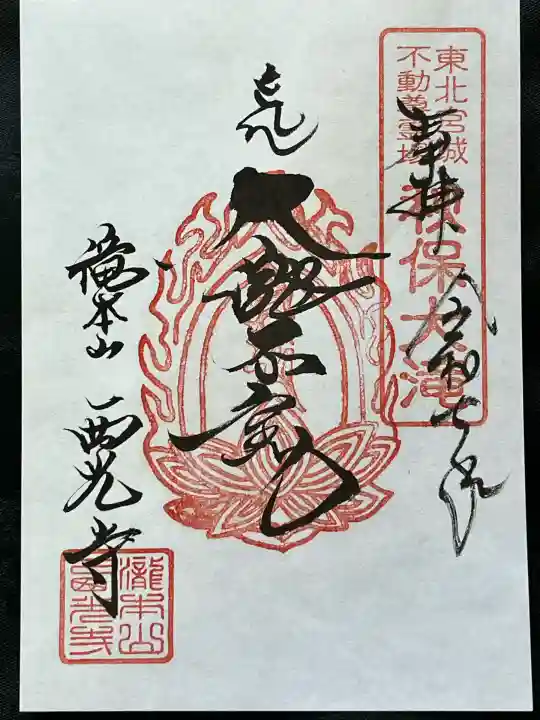 東北宮城
不動尊霊場
秋保大滝
奉拝
令和七年
大瀧不動
滝本山
西光寺
瀧本山
西光寺